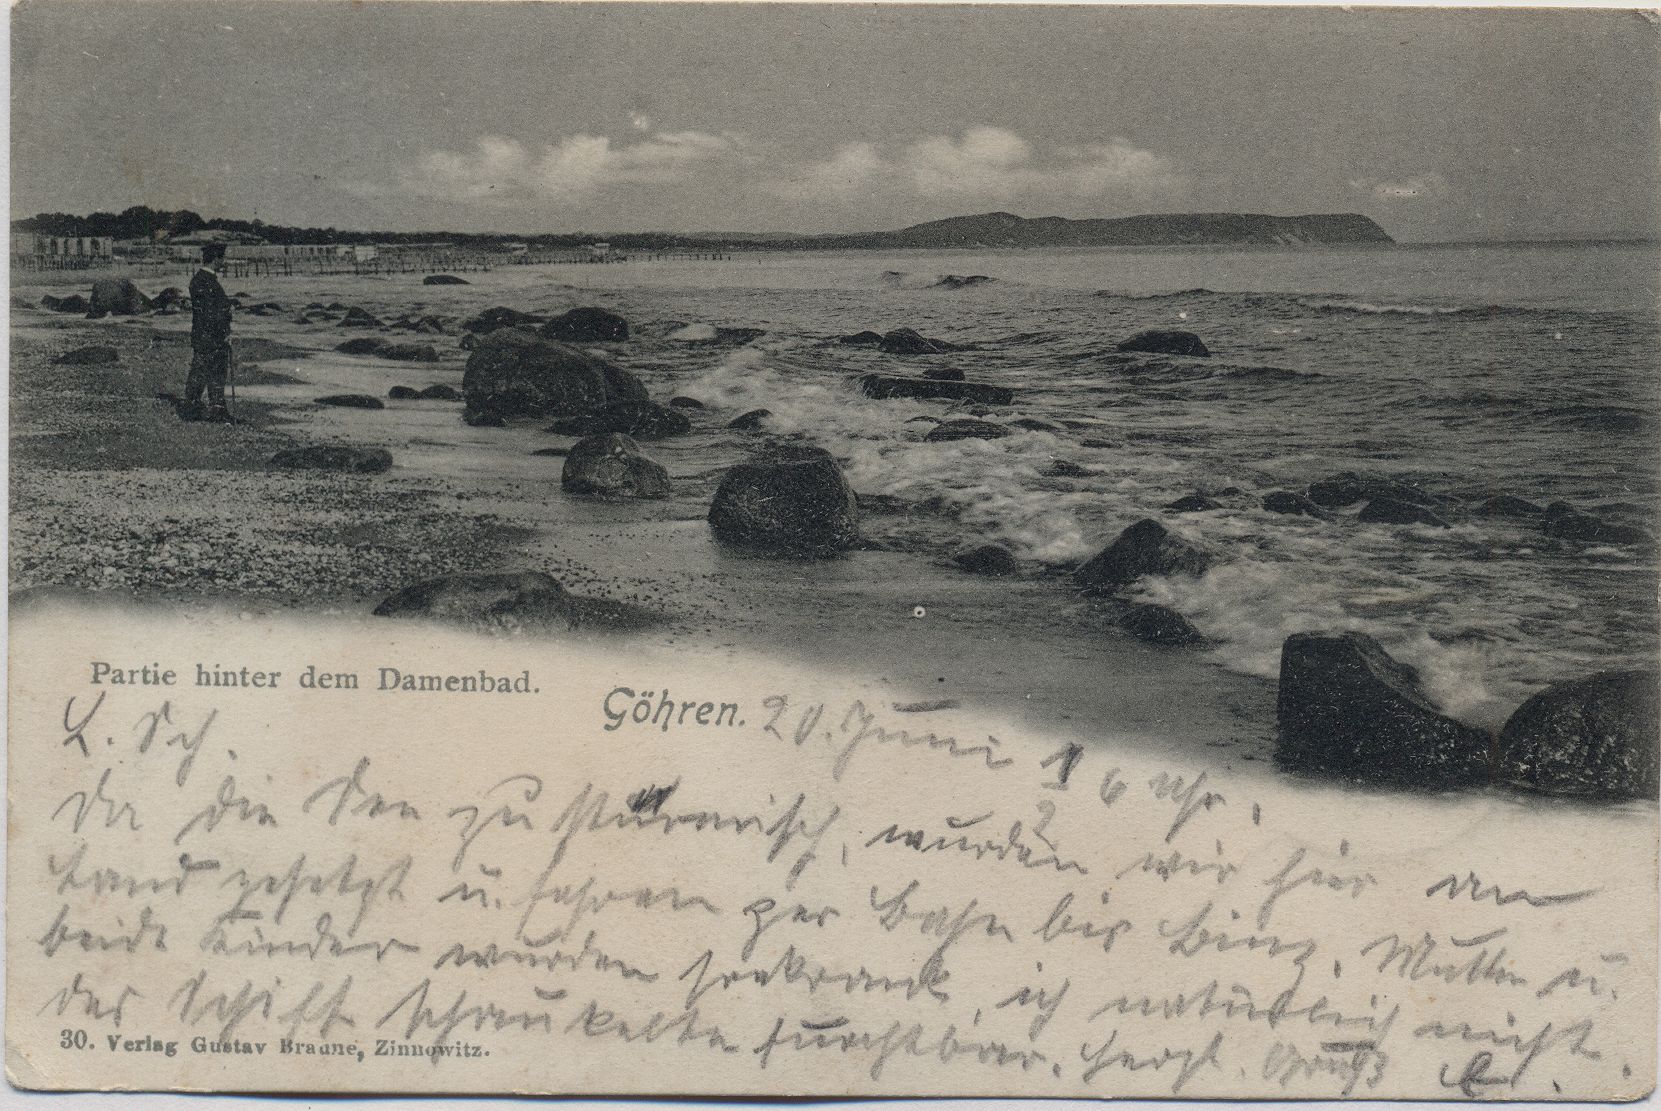 Partie hinter dem Damenbad.
Göhren. 20. Juni 1/2 6 Uhr.
L. Sch.
Da die See zu stürmisch, wurden wir hier an
Land gesetzt u. fahren per Bahn bis Binz. Mutter u.
beide Kinder wurden seekrank, ich natürlich nicht.
das Schiff schaukelte furchtbar. Herzl. Gruß E.
30. Verlag Gustav Braune, Zinnowitz.